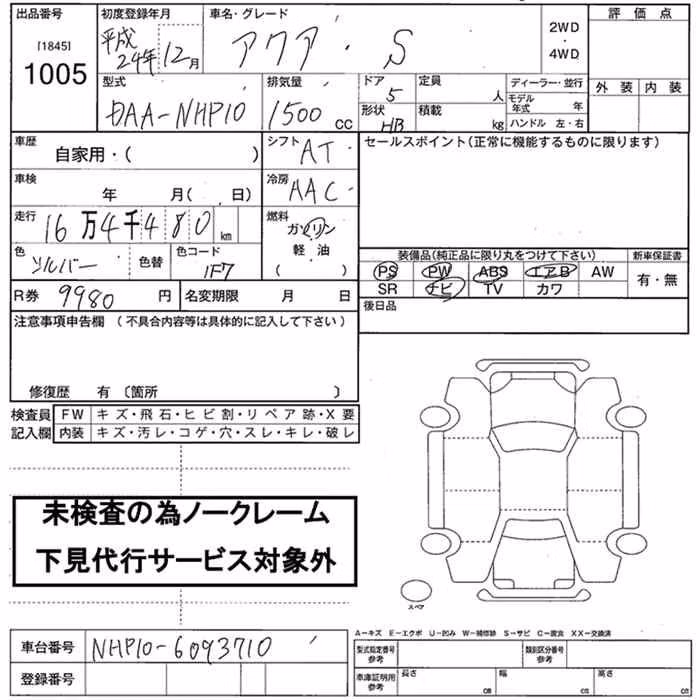 出品番号 初度登録年月 車名・グレード 評価点
[1845] 平成 24年 12月 アクア・S 2WD・4WD
1005
型式 排気量 ドア 定員 ディーラー・並行 外装 内装
DAA-NHP10 1500 cc 5 人 モデル年式 年
形状 積載 ハンドル 左・右
HB kg
車歴 シフト セールスポイント(正常に機能するものに限ります)
自家用・( ) AT
車検 冷房
年 月( 日) AAC
走行 燃料
16万4千480 km ガソリン・軽油
( )
色 シルバー 色替 色コード 1F7
装備品(純正品に限り丸をつけて下さい) 新車保証書
PS PW ABS エアB AW 有・無
SR ナビ TV カワ
R券 9980 円 名変期限 月 日 後日品
注意事項申告欄 (不具合内容等は具体的に記入して下さい)
修復歴 有〔箇所 〕
検査員 FW キズ・飛石・ヒビ割・リペア跡・X要
記入欄 内装 キズ・汚レ・コゲ・穴・スレ・キレ・破レ
未検査の為ノークレーム
下見代行サービス対象外
スペア
A-キズ E-エクボ U-凹み W-補修跡 S-サビ C-腐食 XX-交換済
車台番号 NHP10-6093710
型式指定番号 参考 類別区分番号 参考
登録番号
車庫証明用 参考 長さ cm 幅 cm 高さ cm